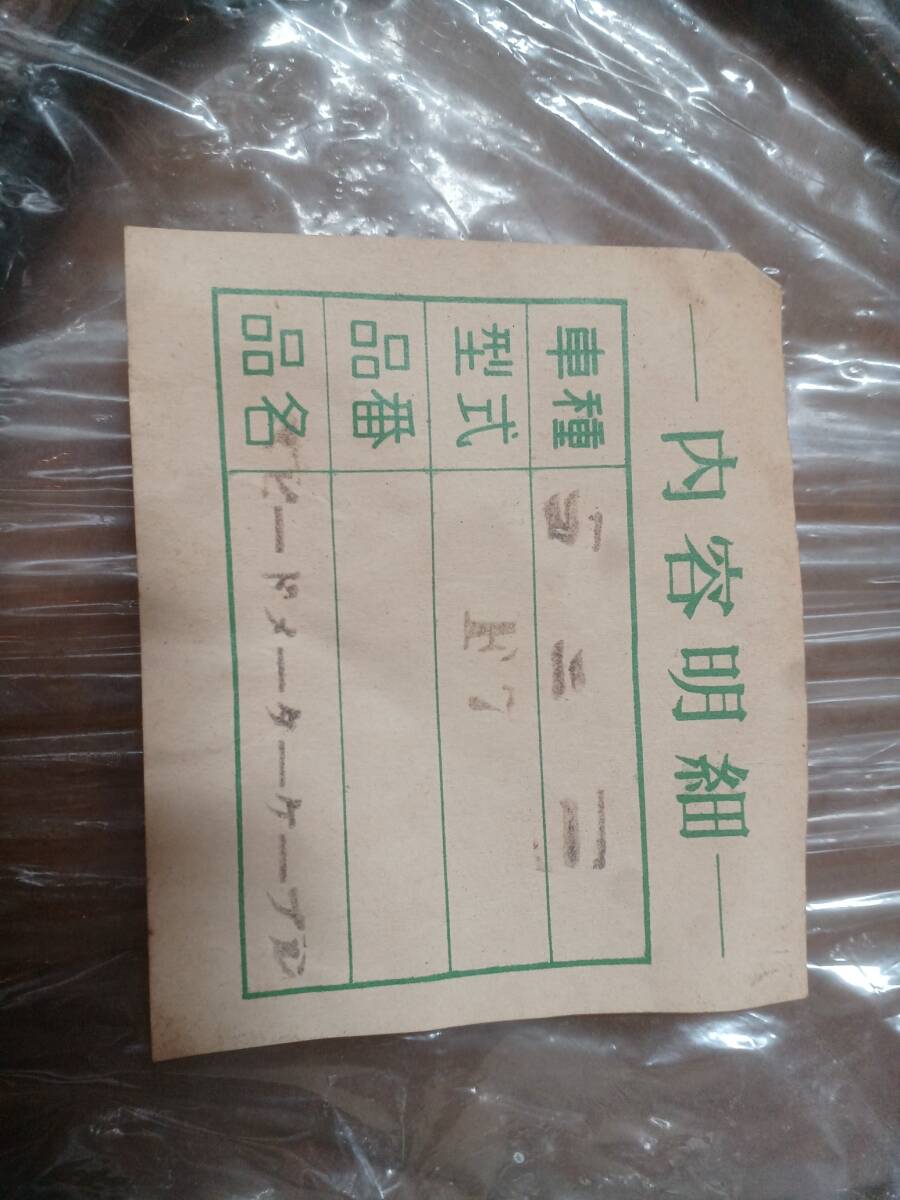 内容明細
車種
型式
品番
品名 スピードメーターケーブル